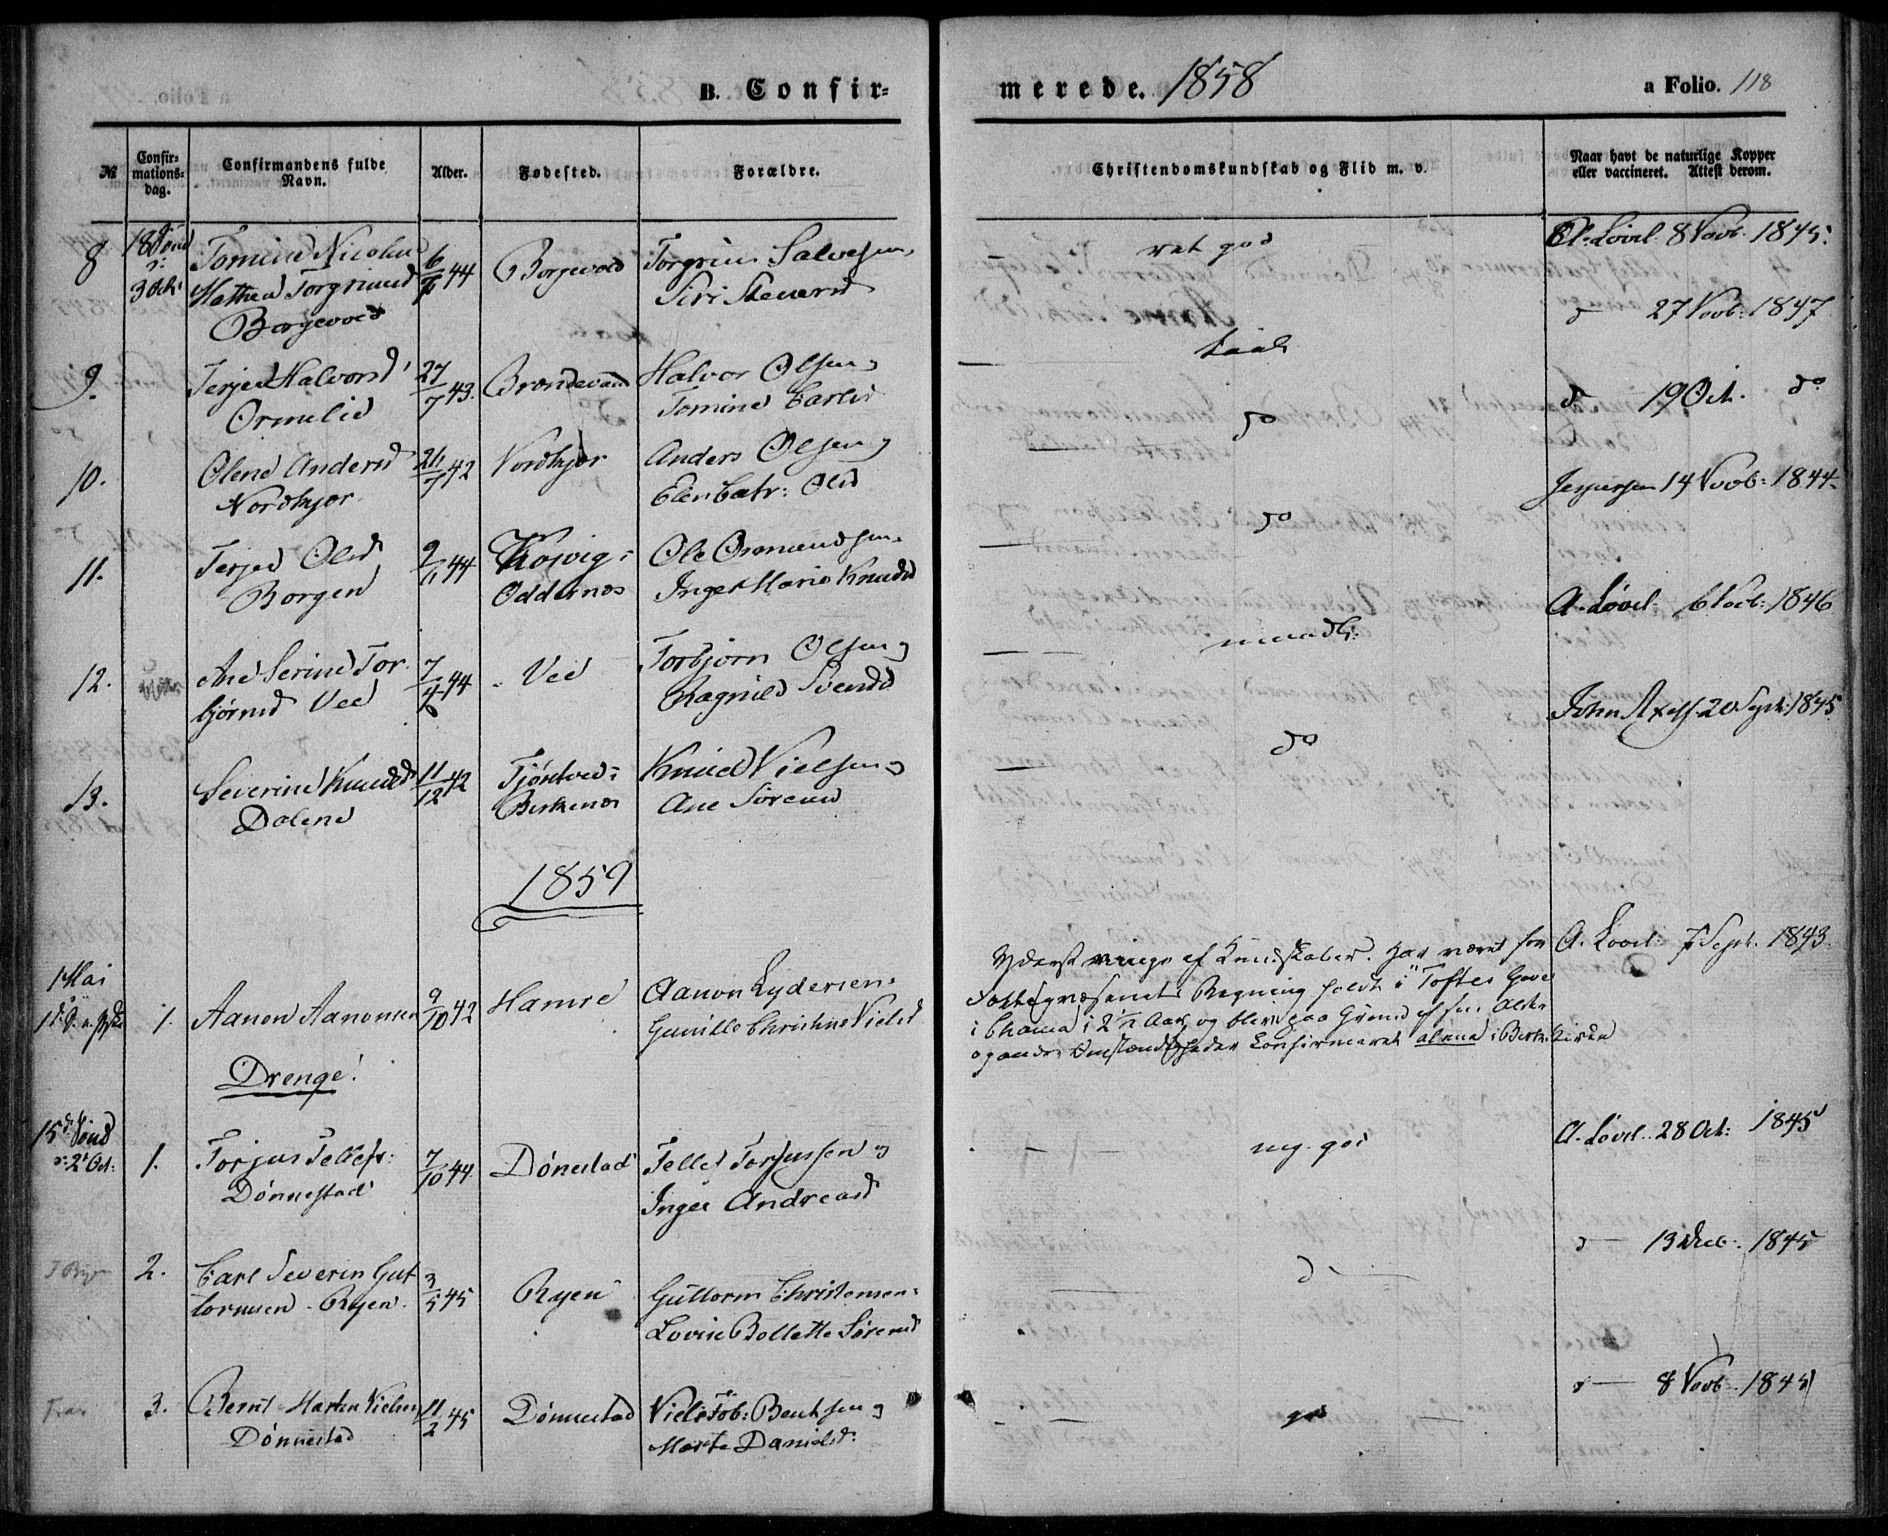 B. Confir=
merede. 1858
a Folio. 118
№
Confir=
mations=
dag.
Confirmandens fulde
Navn.
Alder.
Fødested.
Forældre.
Christendomskundskab og Flid m. v.
Naar havt de naturlige Kopper
eller vaccineret. Attest derom.
8
18 Sønd
3 Oct:
Tomine Nicoline
Torgrimsd
Borgevold
6/ 44
Borgevold
Torgrim Salvesen
Siri Stenersd
ret god
A. Løvel. 8 Novb. 1845.
9.
Terjer Halvorsd
Ormelid
27/7 43.
Brændevand
Halvor Olsen og
Tomine
taal
d 27 Novb: 1847
10.
Olene Andersd
Nordhjor
21/7 42
Nordhjor
Anders Olsen og
Elen Catr: Olsd
do
d 19 Oct. do
11.
Terjer Olsd
Borgen
9/11 44
Kojvig i
Oddernes
Ole Osmundsen
Inger Marie Knudsd
do
Jespersen 14 Novb: 1844
12.
Ane Serine Tor
bjørnsd Vee
7/4 44
Vee
Torbjorn Olsen og
Ragnild Svendsd
maadl:
A. Løvel. 6 1846
13.
Severine Knudsd
Dalene
11/12 42
Tjøntved i
Birkenes
Knud Nielsen og
Ane Sørensd
do
John 20 Sept: 1845
1859
1 Mai
1.
Aanon Aanonsen
9/10 42
Hamre
Aanon Lydersen
Gunille Christine Nielsd
Yderst ringe af Kundskaber. Har været for
Fattigvæsenets Regning holdt i Toftes Gave
i Chania i 2 1/2 Aar, og blev paa Grund af sin Alder
og andre Omstændigheder confirmeret alene i Birk: Kirke
A. Løvel 7 Sept. 1843
Drenge!
15 d Sønd
d: 2 Oct:
1.
Torjus Tellefs:
Dønnestad
7/10 44.
Dønnestad
Tellef Torjussen og
Inger Andreasd
mg. god
A. Løvel. 28 Oct: 1845
2.
Carl Severin Gut
tormsen Ryen
3/5 45
Ryen
Guttorm Christensen
Lovise Bollette Sørensd
d
d 13 Dec: 1845
3.
Bernt Martin Nielsen
Dønnestad
11/2 45
Dønnestad
Niels Tob: Bentsen og
Marte Danielsd.
god
d 8 Novb 1845